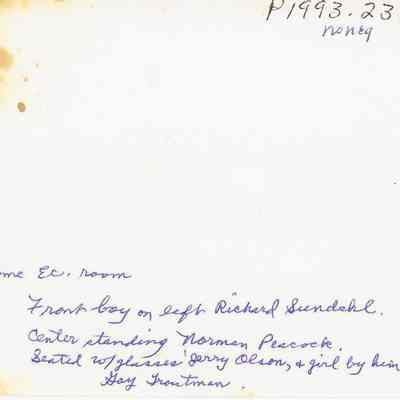 P1993.23
no neg
ome Ec. room
Front boy on left Richard Sundahl.
Center standing Norman Peacock.
Seated w/glasses Jerry Olson, + girl by him
Gay Troutman.